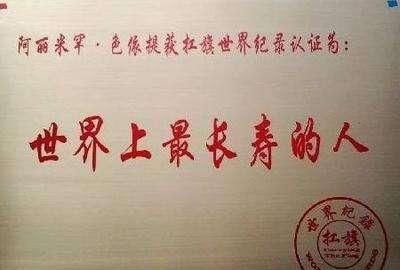 阿丽米罕·色依提获扛旗世界纪录认证为:
世界上最长寿的人
世界纪录
扛旗